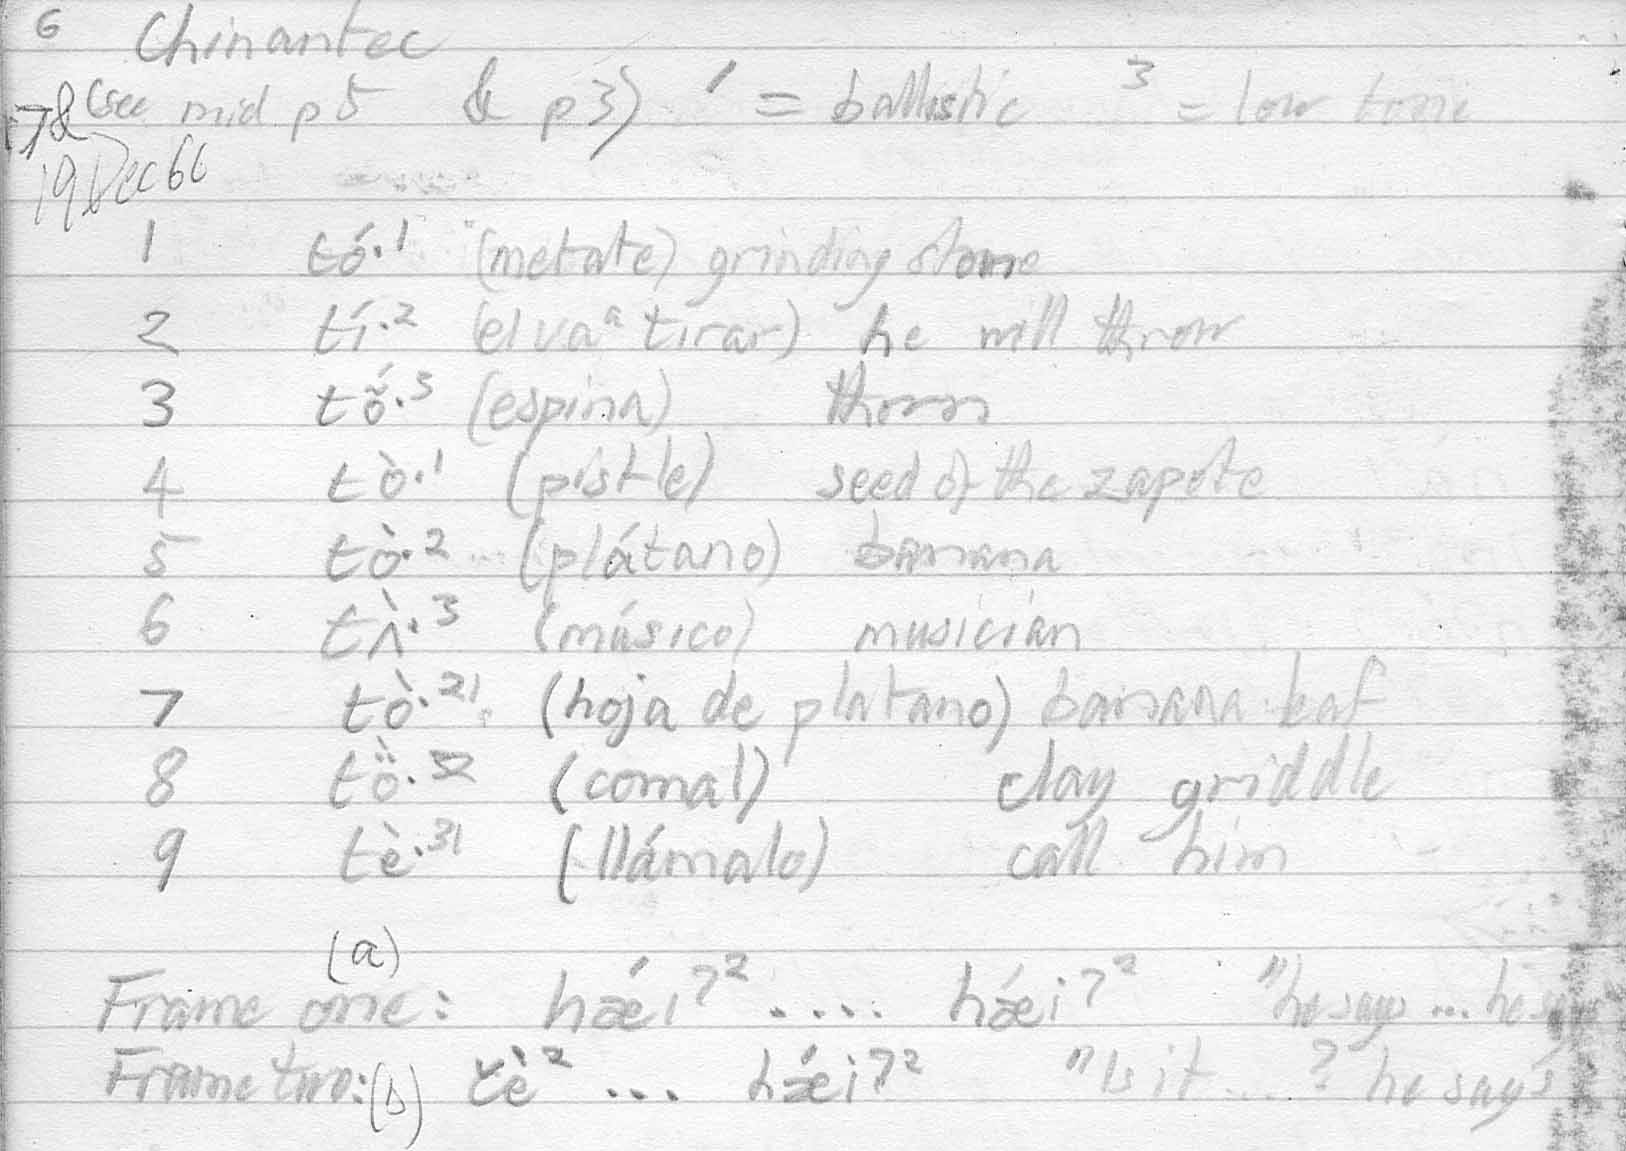 6 Chinantec
7& (see mid p5 & p3) ˊ = ballistic ³ = low tone
19 Dec 66
1 tó·¹ (metate) grinding stone
2 tí·² (el va a tirar) he will throw
3 tő·³ (espina) thorn
4 tò·¹ (pistle) seed of the zapote
5 tò·² (plátano) banana
6 tʌ̀·³ (músico) musician
7 tò·²¹ (hoja de platano) banana leaf
8 tö̀·³² (comal) clay griddle
9 tè·³¹ (llámalo) call him
(a)
Frame one: hǽiʔ² ..... hǽiʔ² "he says ... he says
Frame two: (b) tè² ... hǽiʔ² "Is it ... ? he says